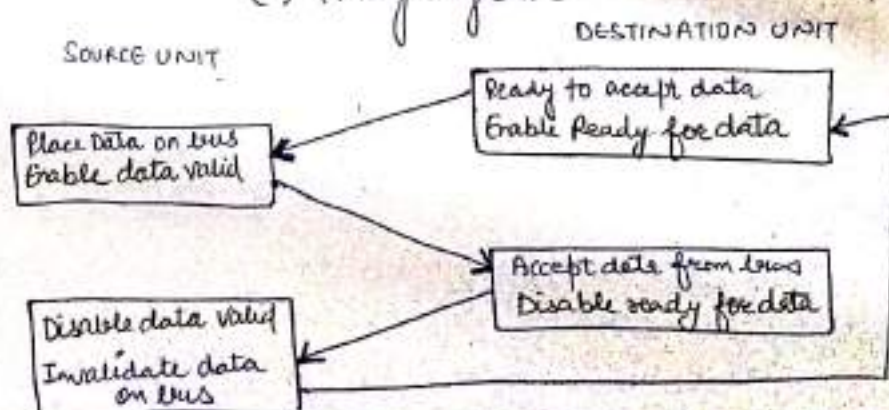 SOURCE UNIT
DESTINATION UNIT
Ready to accept data
Enable Ready for data
Place Data on bus
Enable data valid
Accept data from bus
Disable ready for data
Disable data valid
Invalidate data
on bus